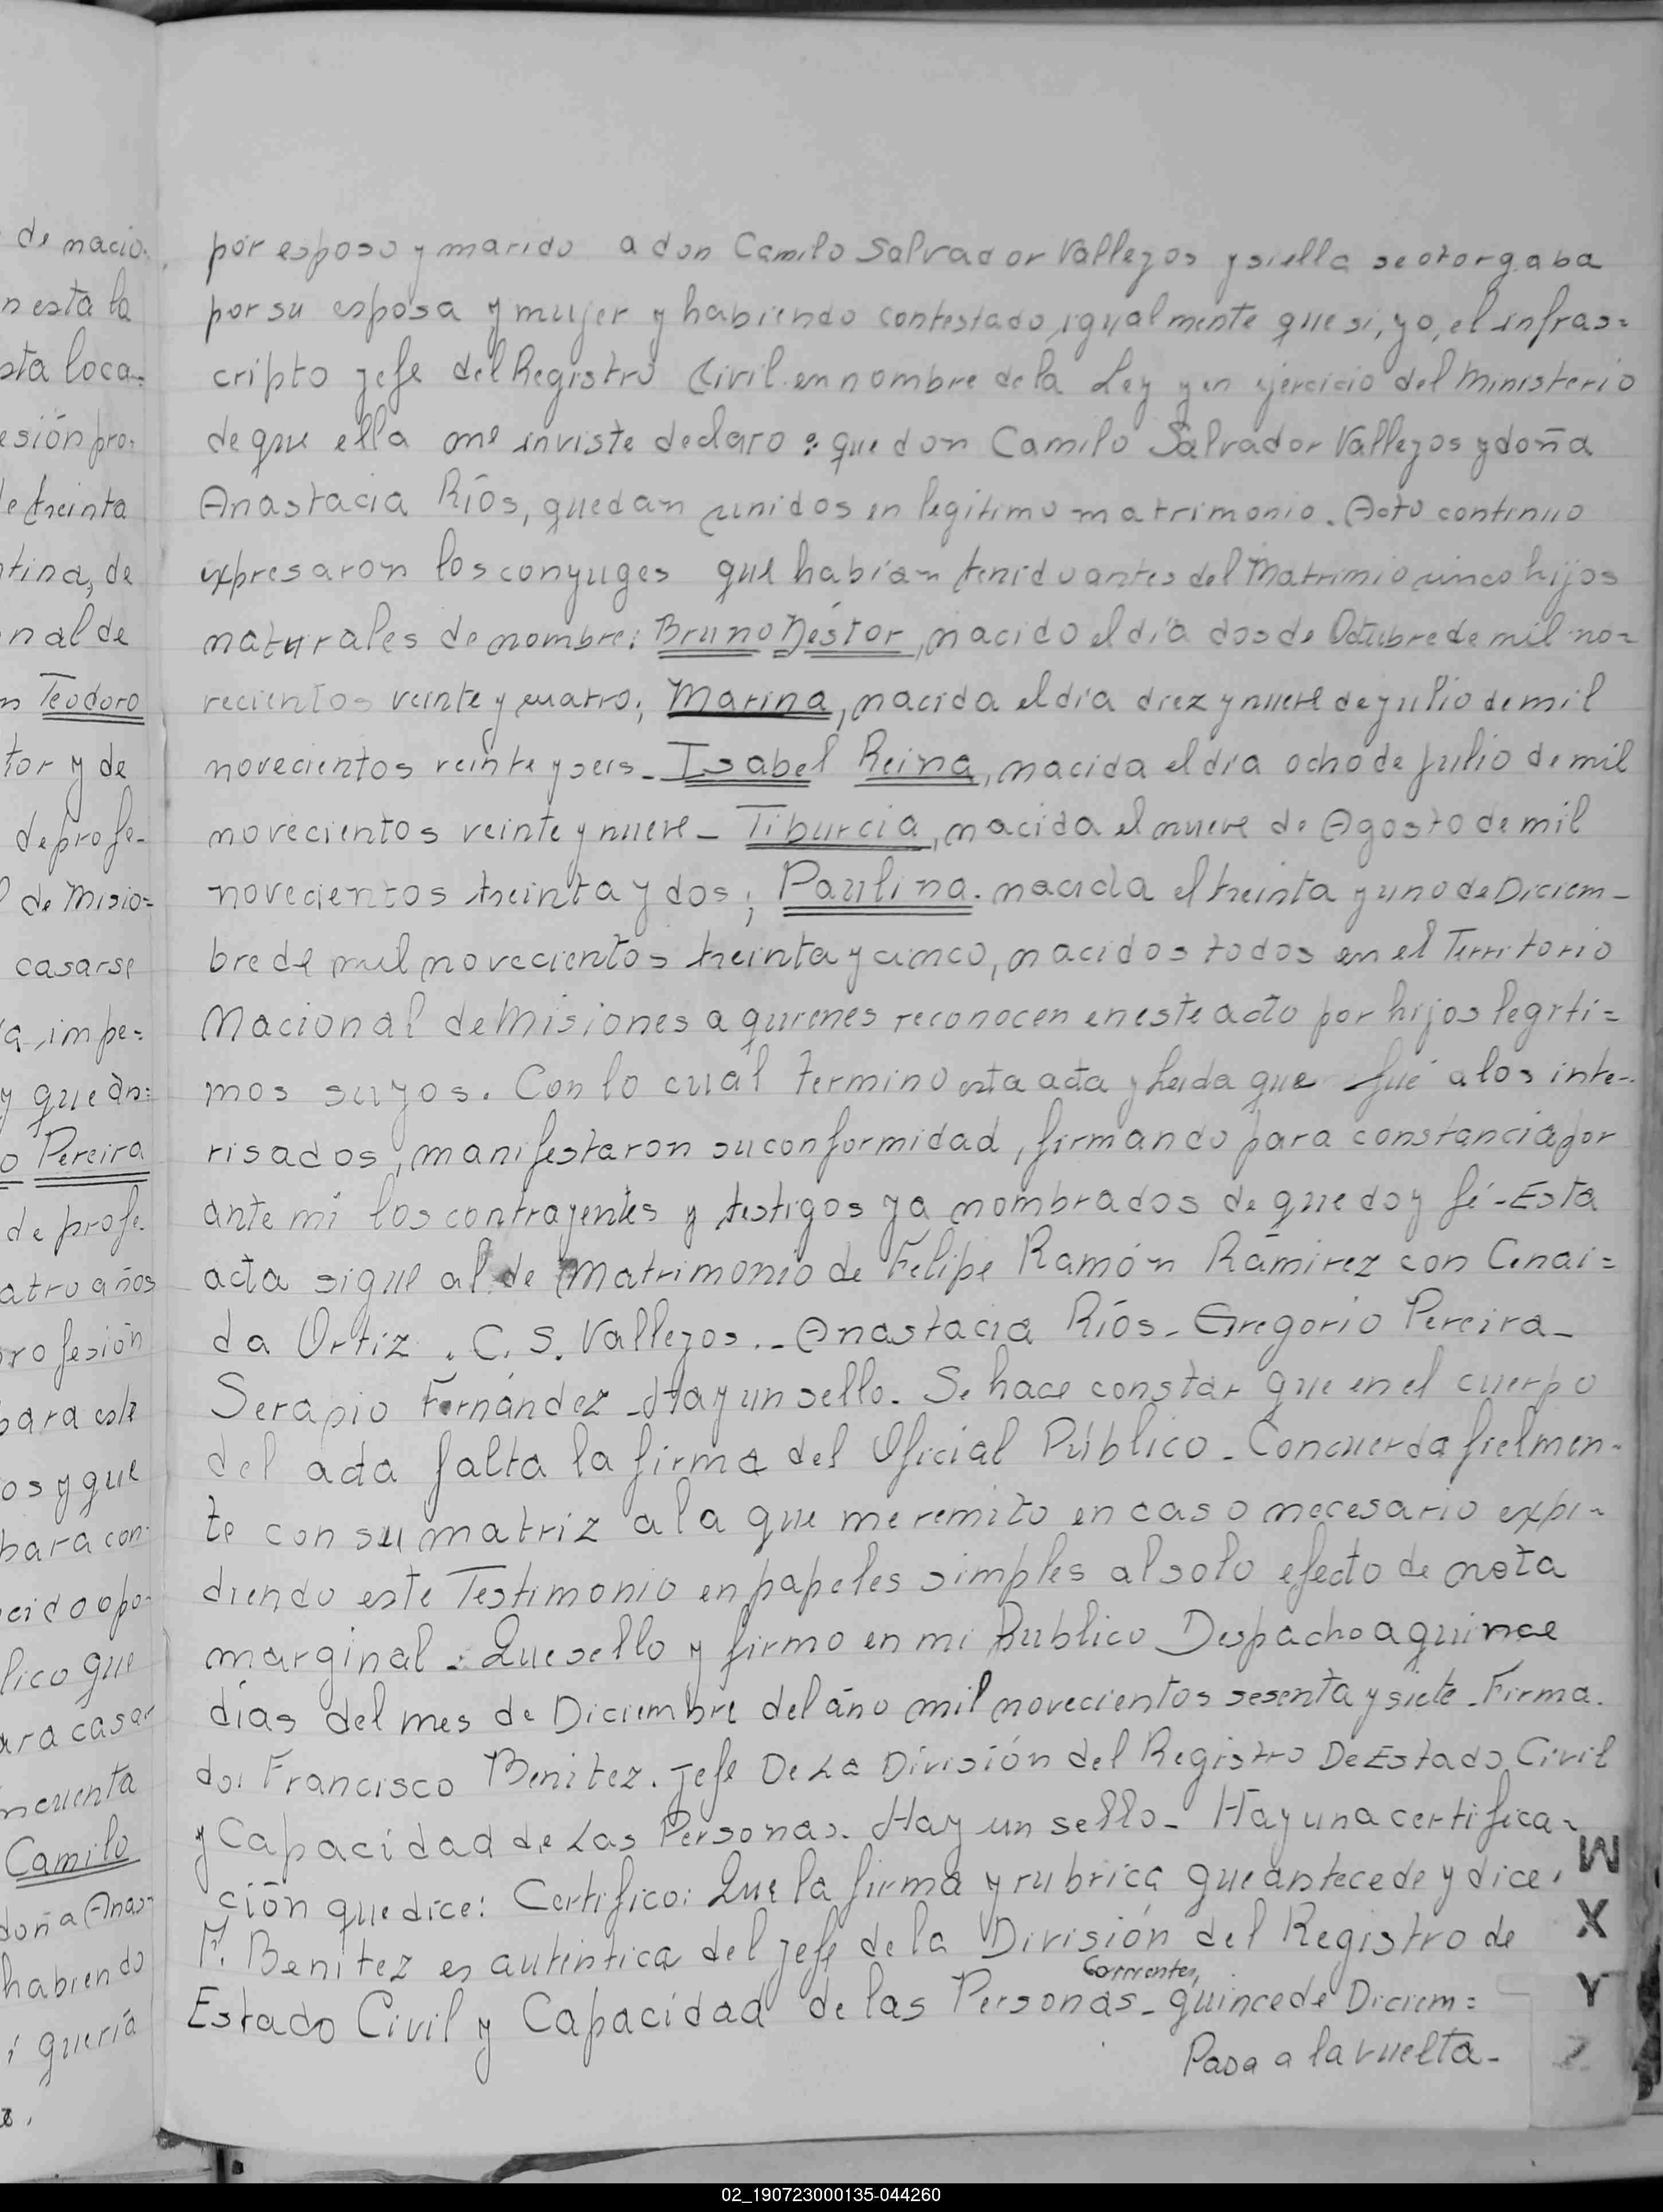 de nacio-
n esta la
sta loca-
esión pro-
de treinta
tina, de
nal de
n Teodoro
tor y de
de profe-
l de Misio=
casarse
a, impe=
y que an=
o Pereira
de profe-
atro años
rofesión
para este
os y que
para con-
cido opo-
lico que
ara casar
ncuenta
Camilo
doña Anas-
habiendo
i quería
por esposo y marido a don Camilo Salvador Vallejos y si ella se otorgaba
por su esposa y mujer y habiendo contestado, igualmente que si, yo, el infras=
cripto jefe del Registro Civil en nombre de la Ley y en ejercicio del Ministerio
de que ella me inviste declaro: que don Camilo Salvador Vallejos y doña
Anastacia Ríos, quedan unidos en legitimo matrimonio. Acto continuo
expresaron los conyuges que habían tenido antes del Matrimio cinco hijos
naturales de nombre: Bruno Néstor, nacido el día dos de Octubre de mil no=
vecientos veinte y cuatro; Marina, nacida el día diez y nueve de julio de mil
novecientos veinte y seis - Isabel Reina, nacida el día ocho de julio de mil
novecientos veinte y nueve - Tiburcia, nacida el nueve de Agosto de mil
novecientos treinta y dos; Paulina. nacida el treinta y uno de Diciem-
bre de mil novecientos treinta y cinco, nacidos todos en el Territorio
Nacional de Misiones a quienes reconocen en este acto por hijos legíti=
mos suyos. Con lo cual termino esta acta y leida que fué a los inte-
risados, manifestaron su conformidad, firmando para constancia por
ante mi los contrayentes y testigos ya nombrados de que doy fé - Esta
acta sigue al de Matrimonio de Felipe Ramón Ramirez con Cenai=
da Ortiz. C. S. Vallejos.- Anastacia Ríos - Gregorio Pereira -
Serapio Fernández - Hay un sello. Se hace constar que en el cuerpo
del acta falta la firma del Oficial Público - Concuerda fielmen-
te con su matriz a la que me remito en caso necesario expi-
diendo este Testimonio en papeles simples al solo efecto de nota
marginal. Que sello y firmo en mi Publico Despacho a quince
días del mes de Diciembre del año mil novecientos sesenta y siete - Firma-
do: Francisco Benitez. Jefe De La División del Registro De Estado Civil
y Capacidad de Las Personas. Hay un sello - Hay una certifica-
ción que dice: Certifico: Que la firma y rubrica que antecede y dice:
F. Benitez es auténtica del jefe de la División del Registro de
Corrientes,
Estado Civil y Capacidad de las Personas - quince de Diciem=
Pasa a la vuelta -
W
X
Y
Z
02_190723000135-044260